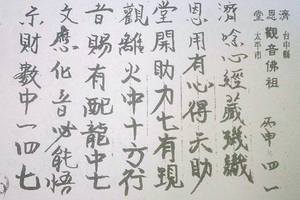 濟恩堂
台中縣太平市
觀音佛祖 丙申 四一
濟唸心經藏璣
恩用有心得天助
堂開助力七有現
觀離火中十方行
音賜有配龍中七
文應化音必能悟
示財數中一四七